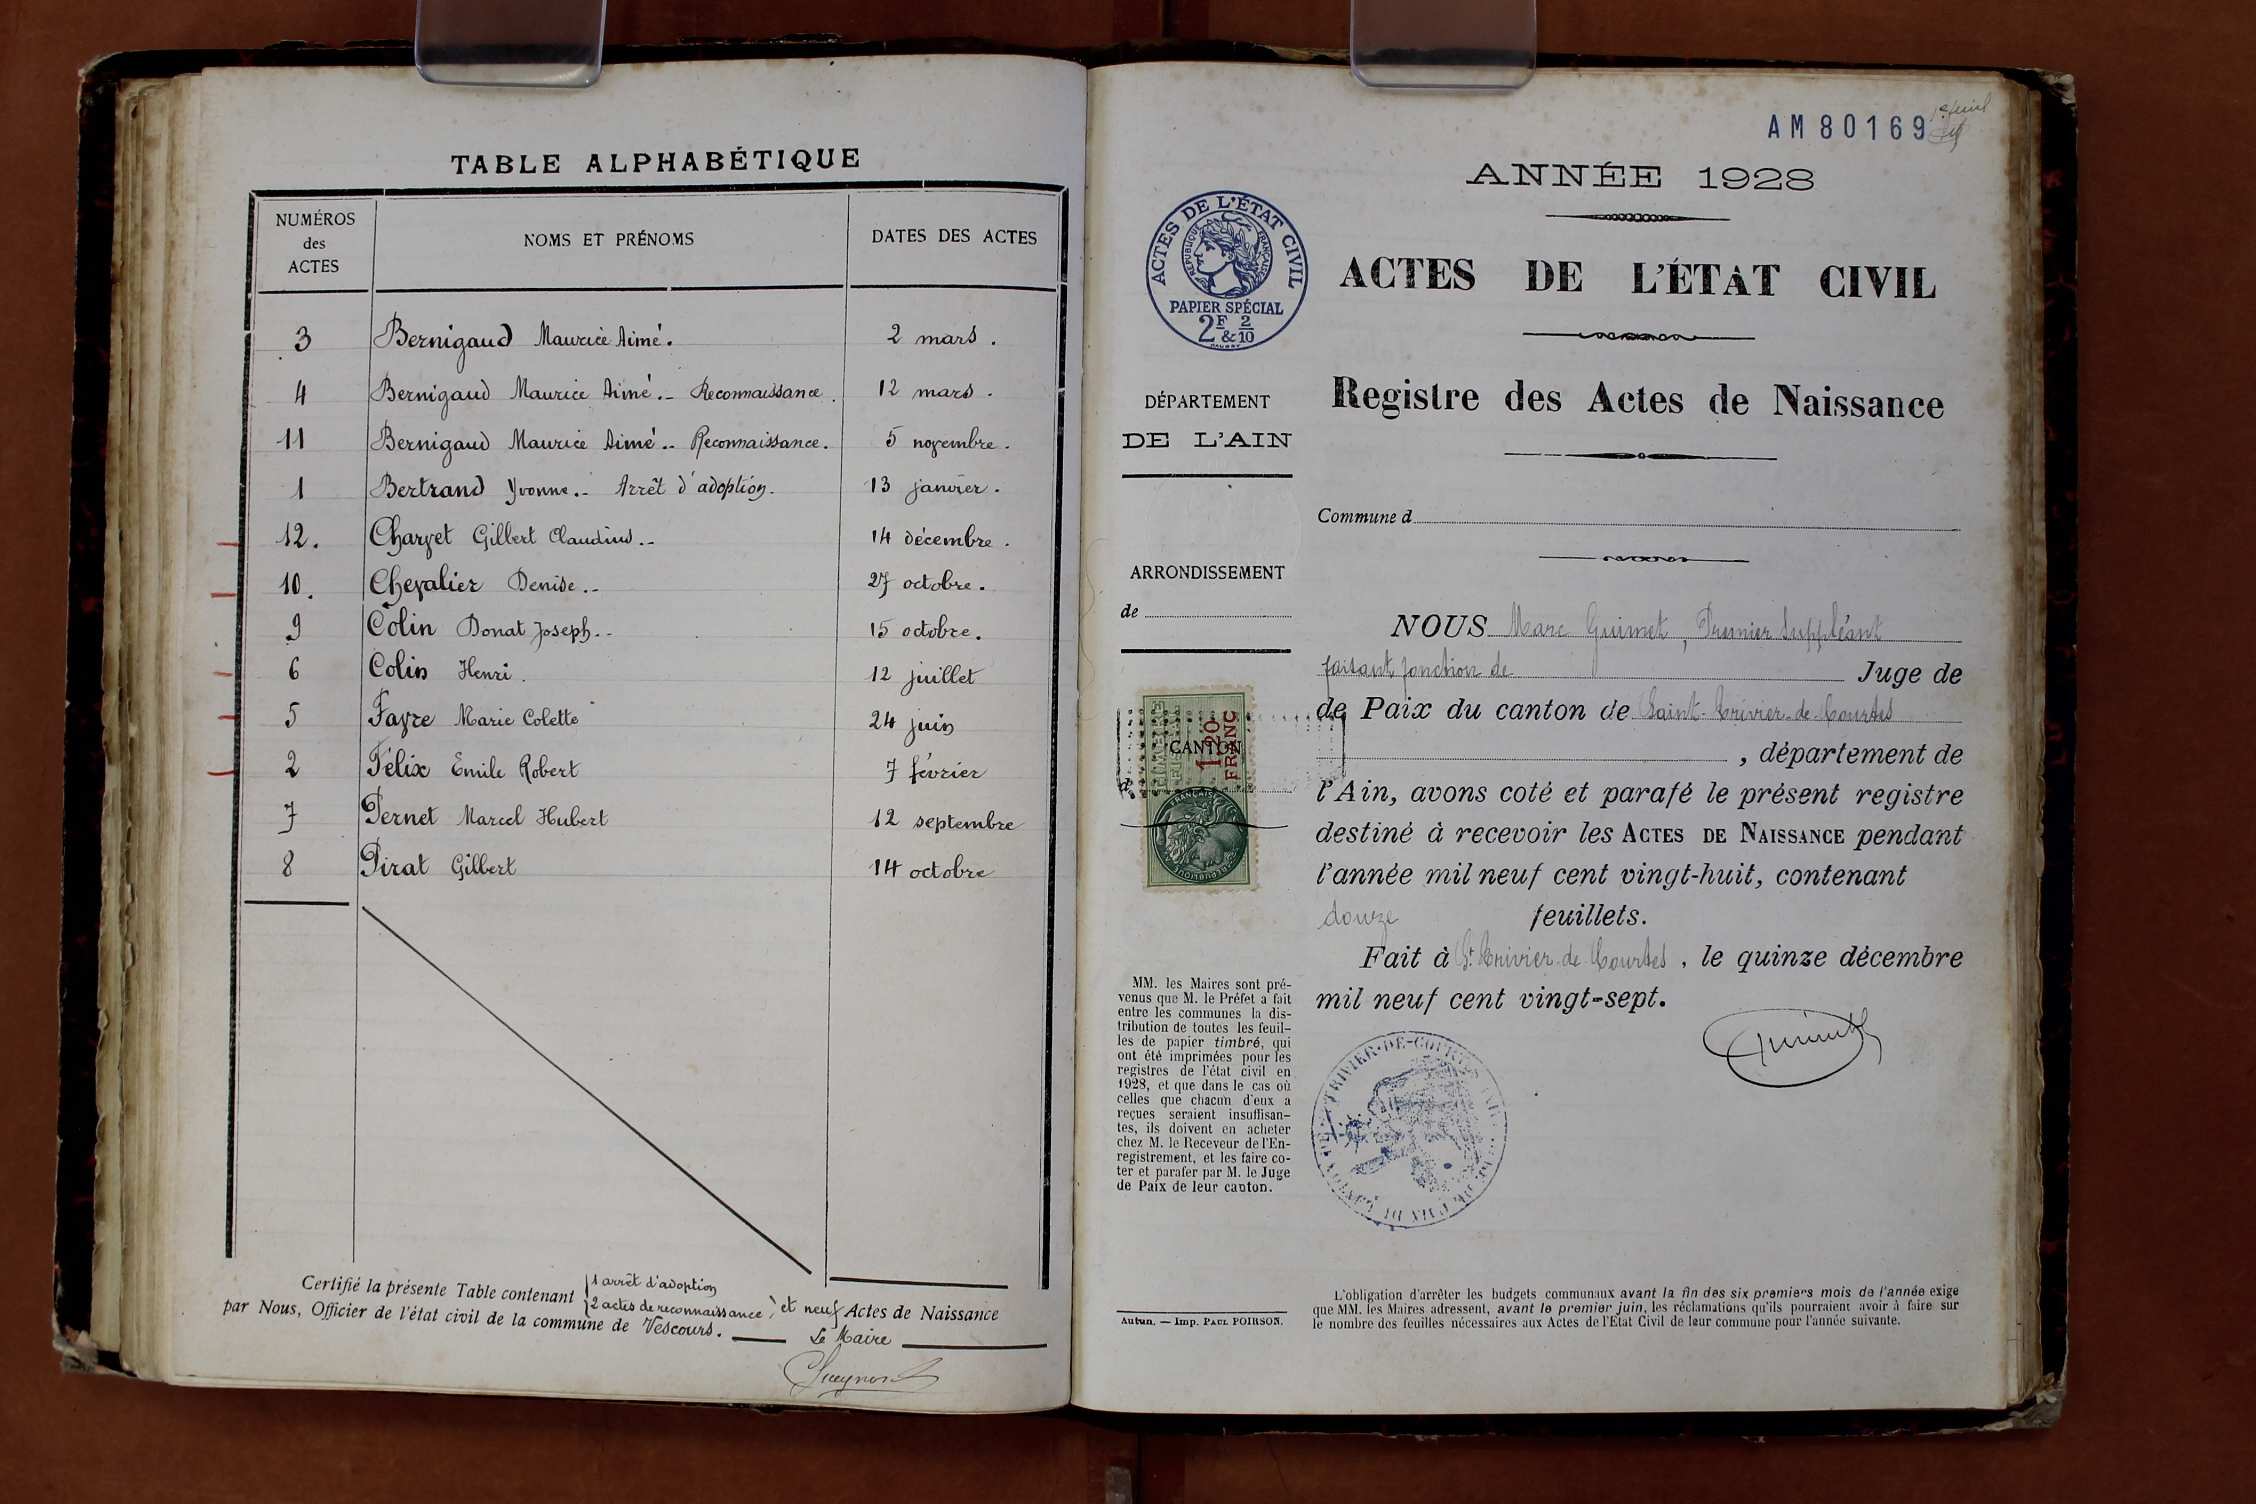 TABLE ALPHABÉTIQUE
NUMÉROS des ACTES
NOMS ET PRÉNOMS
DATES DES ACTES
3 Bernigaud Maurice Aimé. 2 mars.
4 Bernigaud Maurice Aimé.- Reconnaissance. 12 mars.
11 Bernigaud Maurice Aimé.- Reconnaissance. 5 novembre.
1 Bertrand Yvonne.- Arrêt d'adoption. 13 janvier.
12. Charvet Gilbert Claudius.- 14 décembre.
10. Chevalier Denise.- 27 octobre.
9 Colin Donat Joseph.- 15 octobre.
6 Colin Henri. 12 juillet
5 Favre Marie Colette 24 juin
2 Félix Emile Robert 7 février
7 Pernet Marcel Hubert 12 septembre
8 Pirat Gilbert 14 octobre
Certifié la présente Table contenant 1 arrêt d'adoption
2 actes de reconnaissance, et neuf Actes de Naissance
par Nous, Officier de l'état civil de la commune de Vescours.
Le Maire
AM 80169
ANNÉE 1928
ACTES DE L'ÉTAT CIVIL
RÉPUBLIQUE FRANÇAISE
PAPIER SPÉCIAL
2F & 2/10
ACTES DE L'ÉTAT CIVIL
Registre des Actes de Naissance
DÉPARTEMENT
DE L'AIN
Commune d
ARRONDISSEMENT
de
NOUS Marc Guimet, Premier Suppléant
faisant fonction de Juge de
de Paix du canton de Saint-Trivier-de-Courtes
, département de
CANTON
d
1.20
FRANC
l'Ain, avons coté et parafé le présent registre
destiné à recevoir les ACTES DE NAISSANCE pendant
l'année mil neuf cent vingt-huit, contenant
douze feuillets.
Fait à St Trivier-de-Courtes, le quinze décembre
mil neuf cent vingt-sept.
MM. les Maires sont pré-
venus que M. le Préfet a fait
entre les communes la dis-
tribution de toutes les feuil-
les de papier timbré, qui
ont été imprimées pour les
registres de l'état civil en
1928, et que dans le cas où
celles que chacun d'eux a
reçues seraient insuffisan-
tes, ils doivent en acheter
chez M. le Receveur de l'En-
registrement, et les faire co-
ter et parafer par M. le Juge
de Paix de leur canton.
Autun. — Imp. PAUL POIRSON.
L'obligation d'arrêter les budgets communaux avant la fin des six premiers mois de l'année exige
que MM. les Maires adressent, avant le premier juin, les réclamations qu'ils pourraient avoir à faire sur
le nombre des feuilles nécessaires aux Actes de l'Etat Civil de leur commune pour l'année suivante.